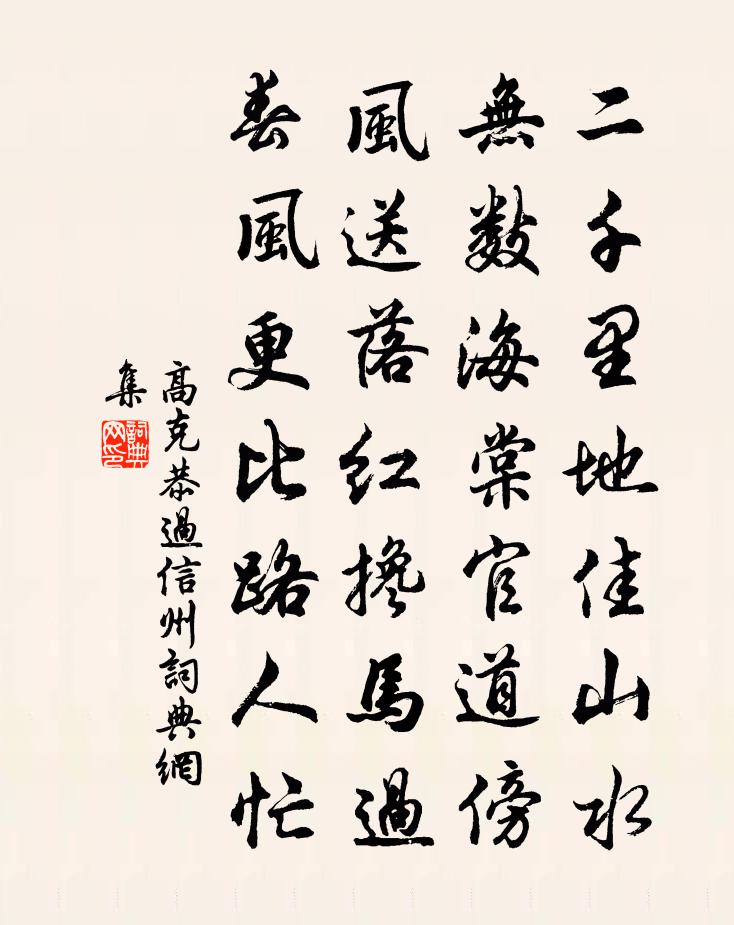 二千里地佳山水
無數海棠官道傍
風送落紅攙馬過
春風更比路人忙
高克恭過信州詞典網
集
詞典網印